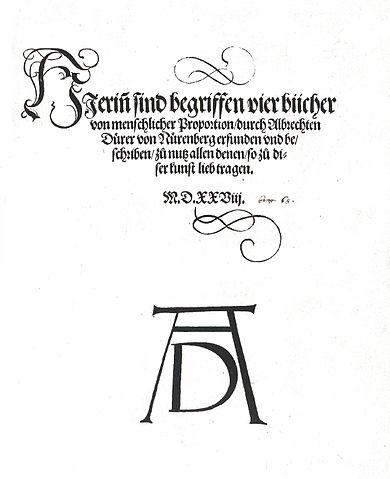 HJeriñ sind begriffen vier bücher
von menschlicher Proportion/durch Albrechten
Dürer von Nürenberg erfunden vnd be/
schriben/zů nutz allen denen/so zů di-
ser kunst lieb tragen.
M.D.XXViij.
AD